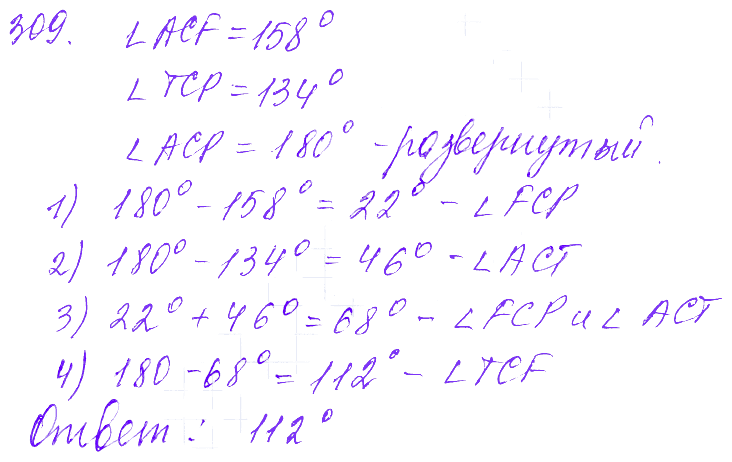 309. ∠ACF = 158°
∠TCP = 134°
∠ACP = 180° - развернутый.
1) 180° - 158° = 22° - ∠FCP
2) 180° - 134° = 46° - ∠ACT
3) 22° + 46° = 68° - ∠FCP и ∠ACT
4) 180 - 68° = 112° - ∠TCF
Ответ: 112°